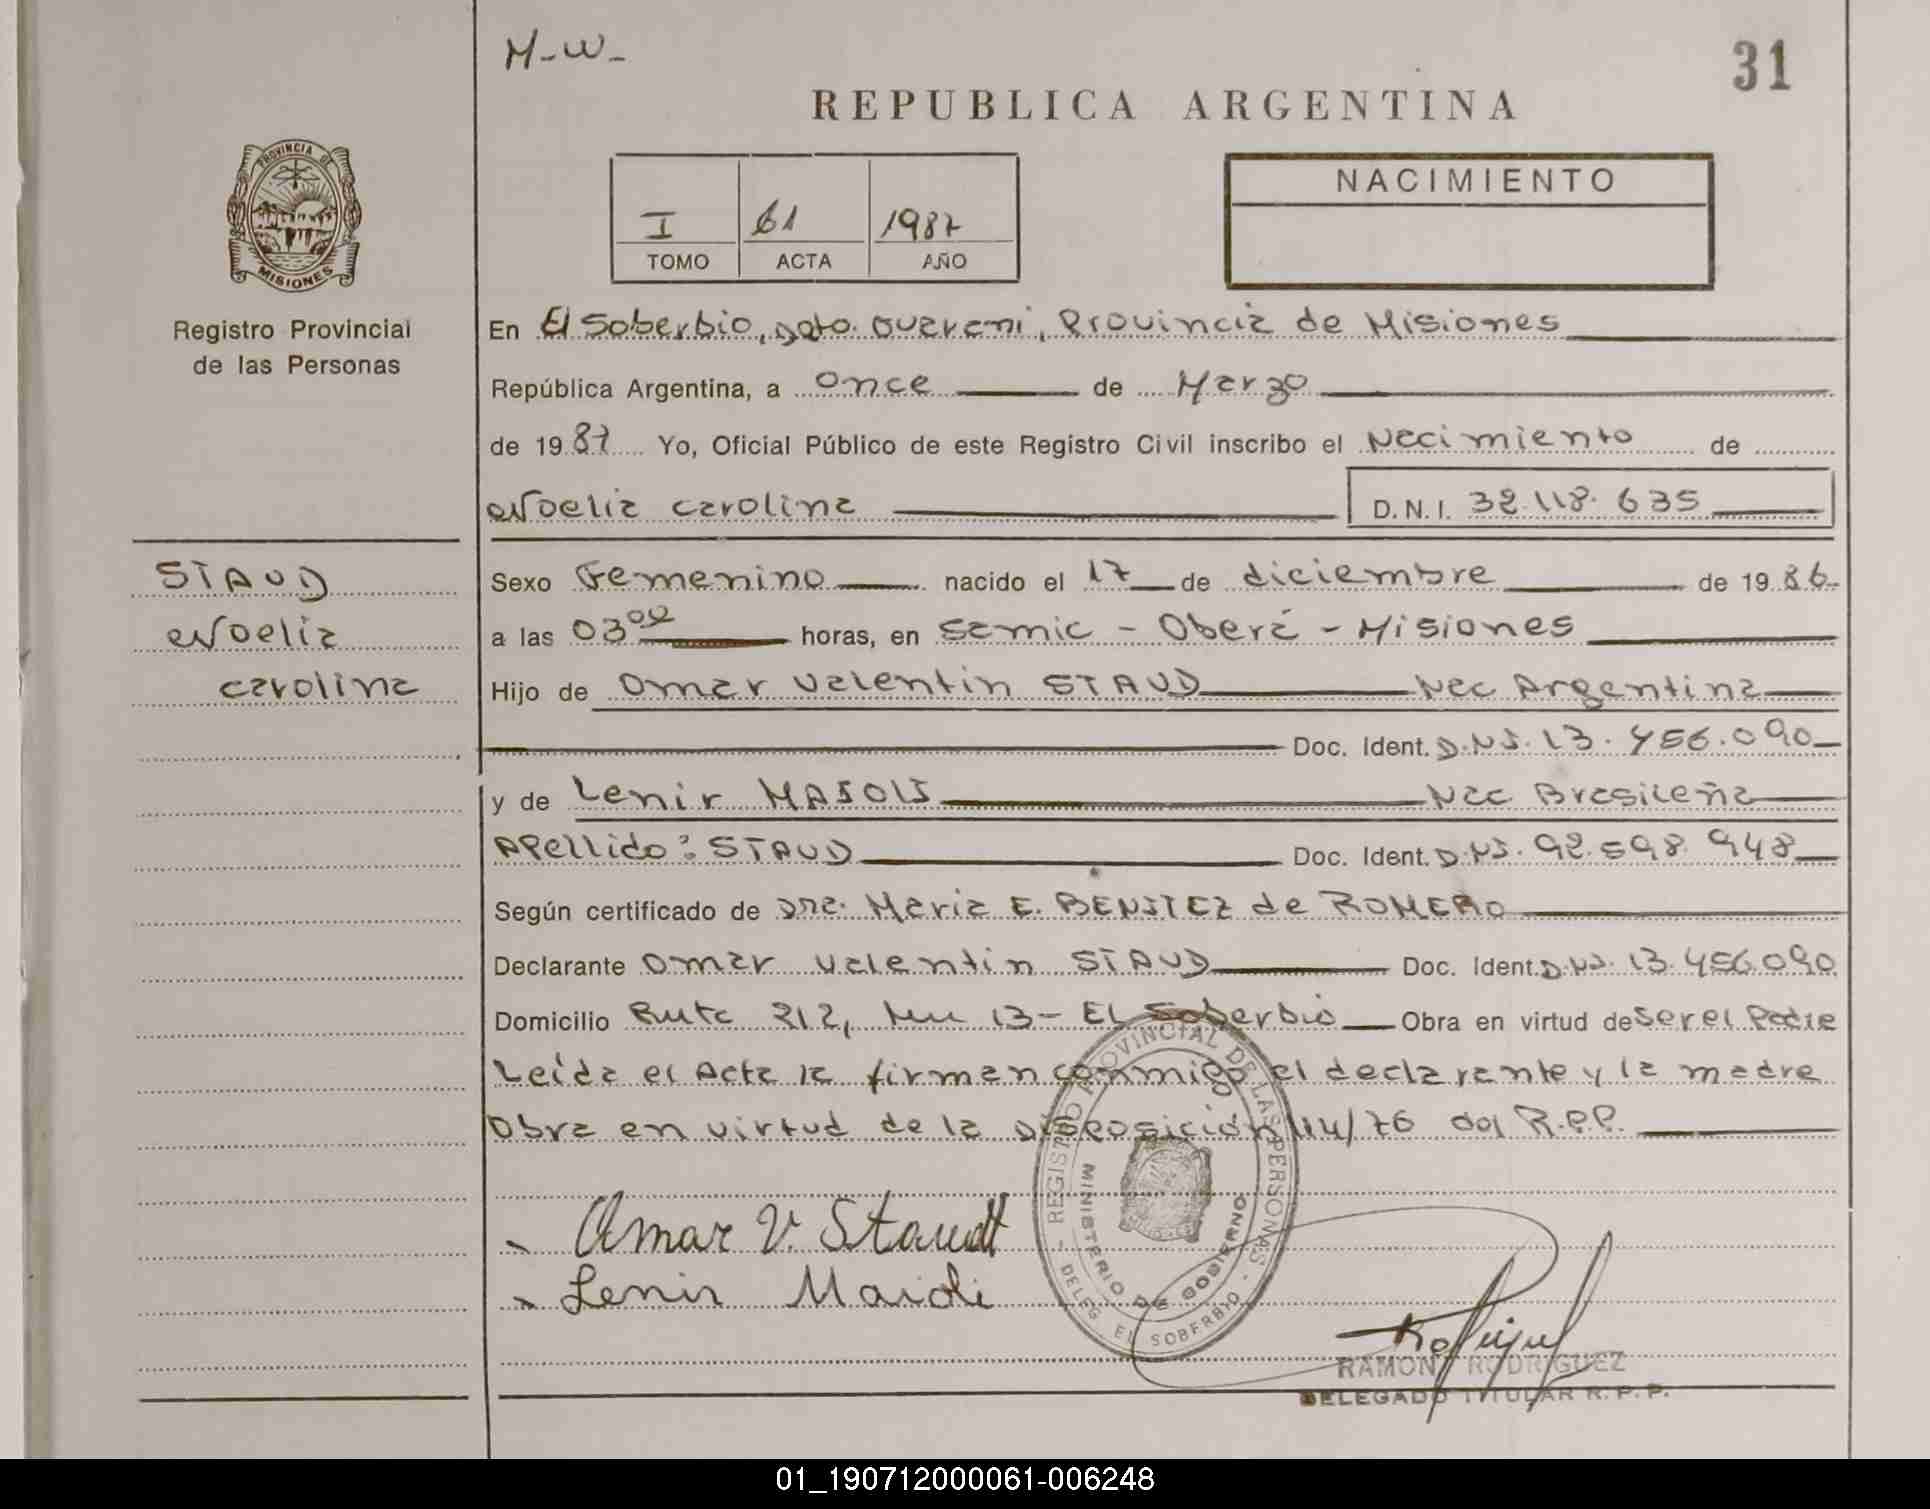 M-W-
31
REPUBLICA ARGENTINA
PROVINCIA DE
MISIONES
Registro Provincial
de las Personas
I 61 1987
TOMO ACTA AÑO
NACIMIENTO
En El Soberbio, Dpto. Guarani, Provincia de Misiones
República Argentina, a once de Marzo
de 1987 Yo, Oficial Público de este Registro Civil inscribo el Nacimiento de
Noelia Carolina D.N.I. 32.118.635
STAUD
Noelia
Carolina
Sexo Femenino nacido el 17 de diciembre de 1986
a las 03 horas, en Samic - Oberá - Misiones
Hijo de Omar Valentin STAUD Nac Argentina
Doc. Ident. D.N.I. 13.456.090
y de Lenir MAIOLI Nac Brasileña
Apellido: STAUD Doc. Ident. D.N.I. 92.598.948
Según certificado de Dra. Maria E. BENITEZ de ROMERO
Declarante Omar Valentin STAUD Doc. Ident. D.N.I. 13.456.090
Domicilio Ruta 212, km 13 - El Soberbio Obra en virtud de ser el Padre
Leída el Acta la firman conmigo el declarante y la madre
Obra en virtud de la Disposición 114/76 del R.P.P.
Omar V. Staudt
Lenir Maioli
- REGISTRO PROVINCIAL DE LAS PERSONAS -
DELEG. EL SOBERBIO
MINISTERIO DE GOBIERNO
RAMON RODRIGUEZ
DELEGADO TITULAR R.P.P.
01_190712000061-006248